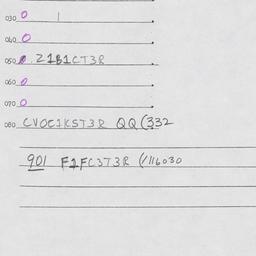 030 0
040 0
050 0 21B1CT3R
060 0
070 0
080 CVOC1KST3R QQ(332
901 F1FC3T3R (/116030